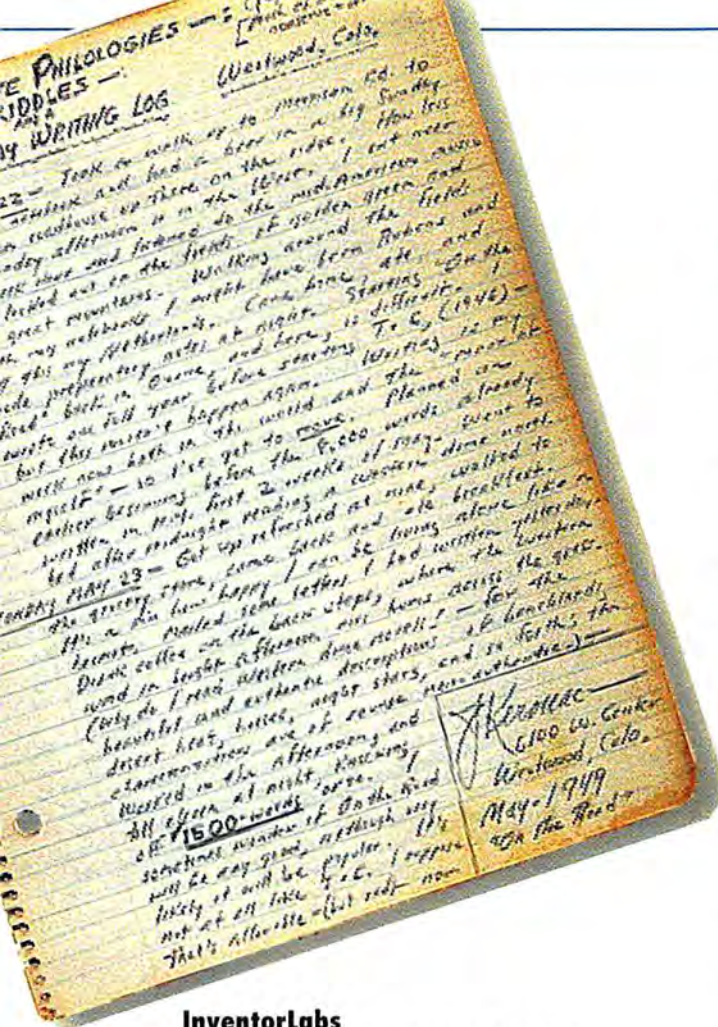 TE PHILOLOGIES —:
RIDDLES —
AND A
WRITING LOG
Westwood, Colo.
22 — Took a walk up to Morrison Rd. to
notebook and had a beer in a big Sunday
roadhouse up there on the ridge. How less
afternoon is in the West. I sat near
door and listened to the mid-American music
looked out on the fields of golden green and
great mountains. Walking around the fields
my notebook I might have been Rubens and
this my Netherlands. Came home, ate, and
preparatory notes at night. Starting On the
back in Ozone, and here, is difficult. I
wrote one full year before starting T. & C. (1946) —
but this mustn't happen again. Writing is my
work now both in the world and the
myself — so I've got to move. Planned an
earlier beginning before the 8,000 words already
written in first 2 weeks of May. Went to
bed after midnight reading a western dime novel.
MONDAY MAY 23 — Got up refreshed at nine, walked to
the grocery store, came back and ate breakfast.
It's a sin how happy I can be living alone like a
hermit. Mailed some letters I had written yesterday.
Drank coffee on the back steps, where the western
wind in bright afternoon airs hums across the
(Why do I read Western dime novels? — for the
beautiful and authentic descriptions of benchlands,
desert heat, horses, night stars, and so forth; the
characterizations are of course non-authentic.) —
Worked in the afternoon, and
till eleven at night, knocking
off 1500-words I
sometimes wonder if On the Road
will be any good, although very
likely it will be popular. It's
not at all like T. & C. I suppose
that's allowable — (but sad) now
JKerouac —
6100 W. Center
Westwood, Colo.
May-1949
"On the Road"
InventorLabs